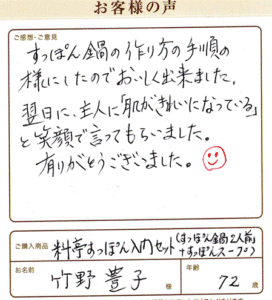 お客様の声
ご感想・ご意見
すっぽん鍋の作り方の手順の
様にしたのでおいしく出来ました。
翌日に、主人に「肌がきれいになっている」
と笑顔で言ってもらいました。
有りがとうございました。
ご購入商品 料亭すっぽん入門セット(すっぽん鍋2人前
+すっぽんスープ)
お名前 竹野 豊子 様 年齢 72 歳